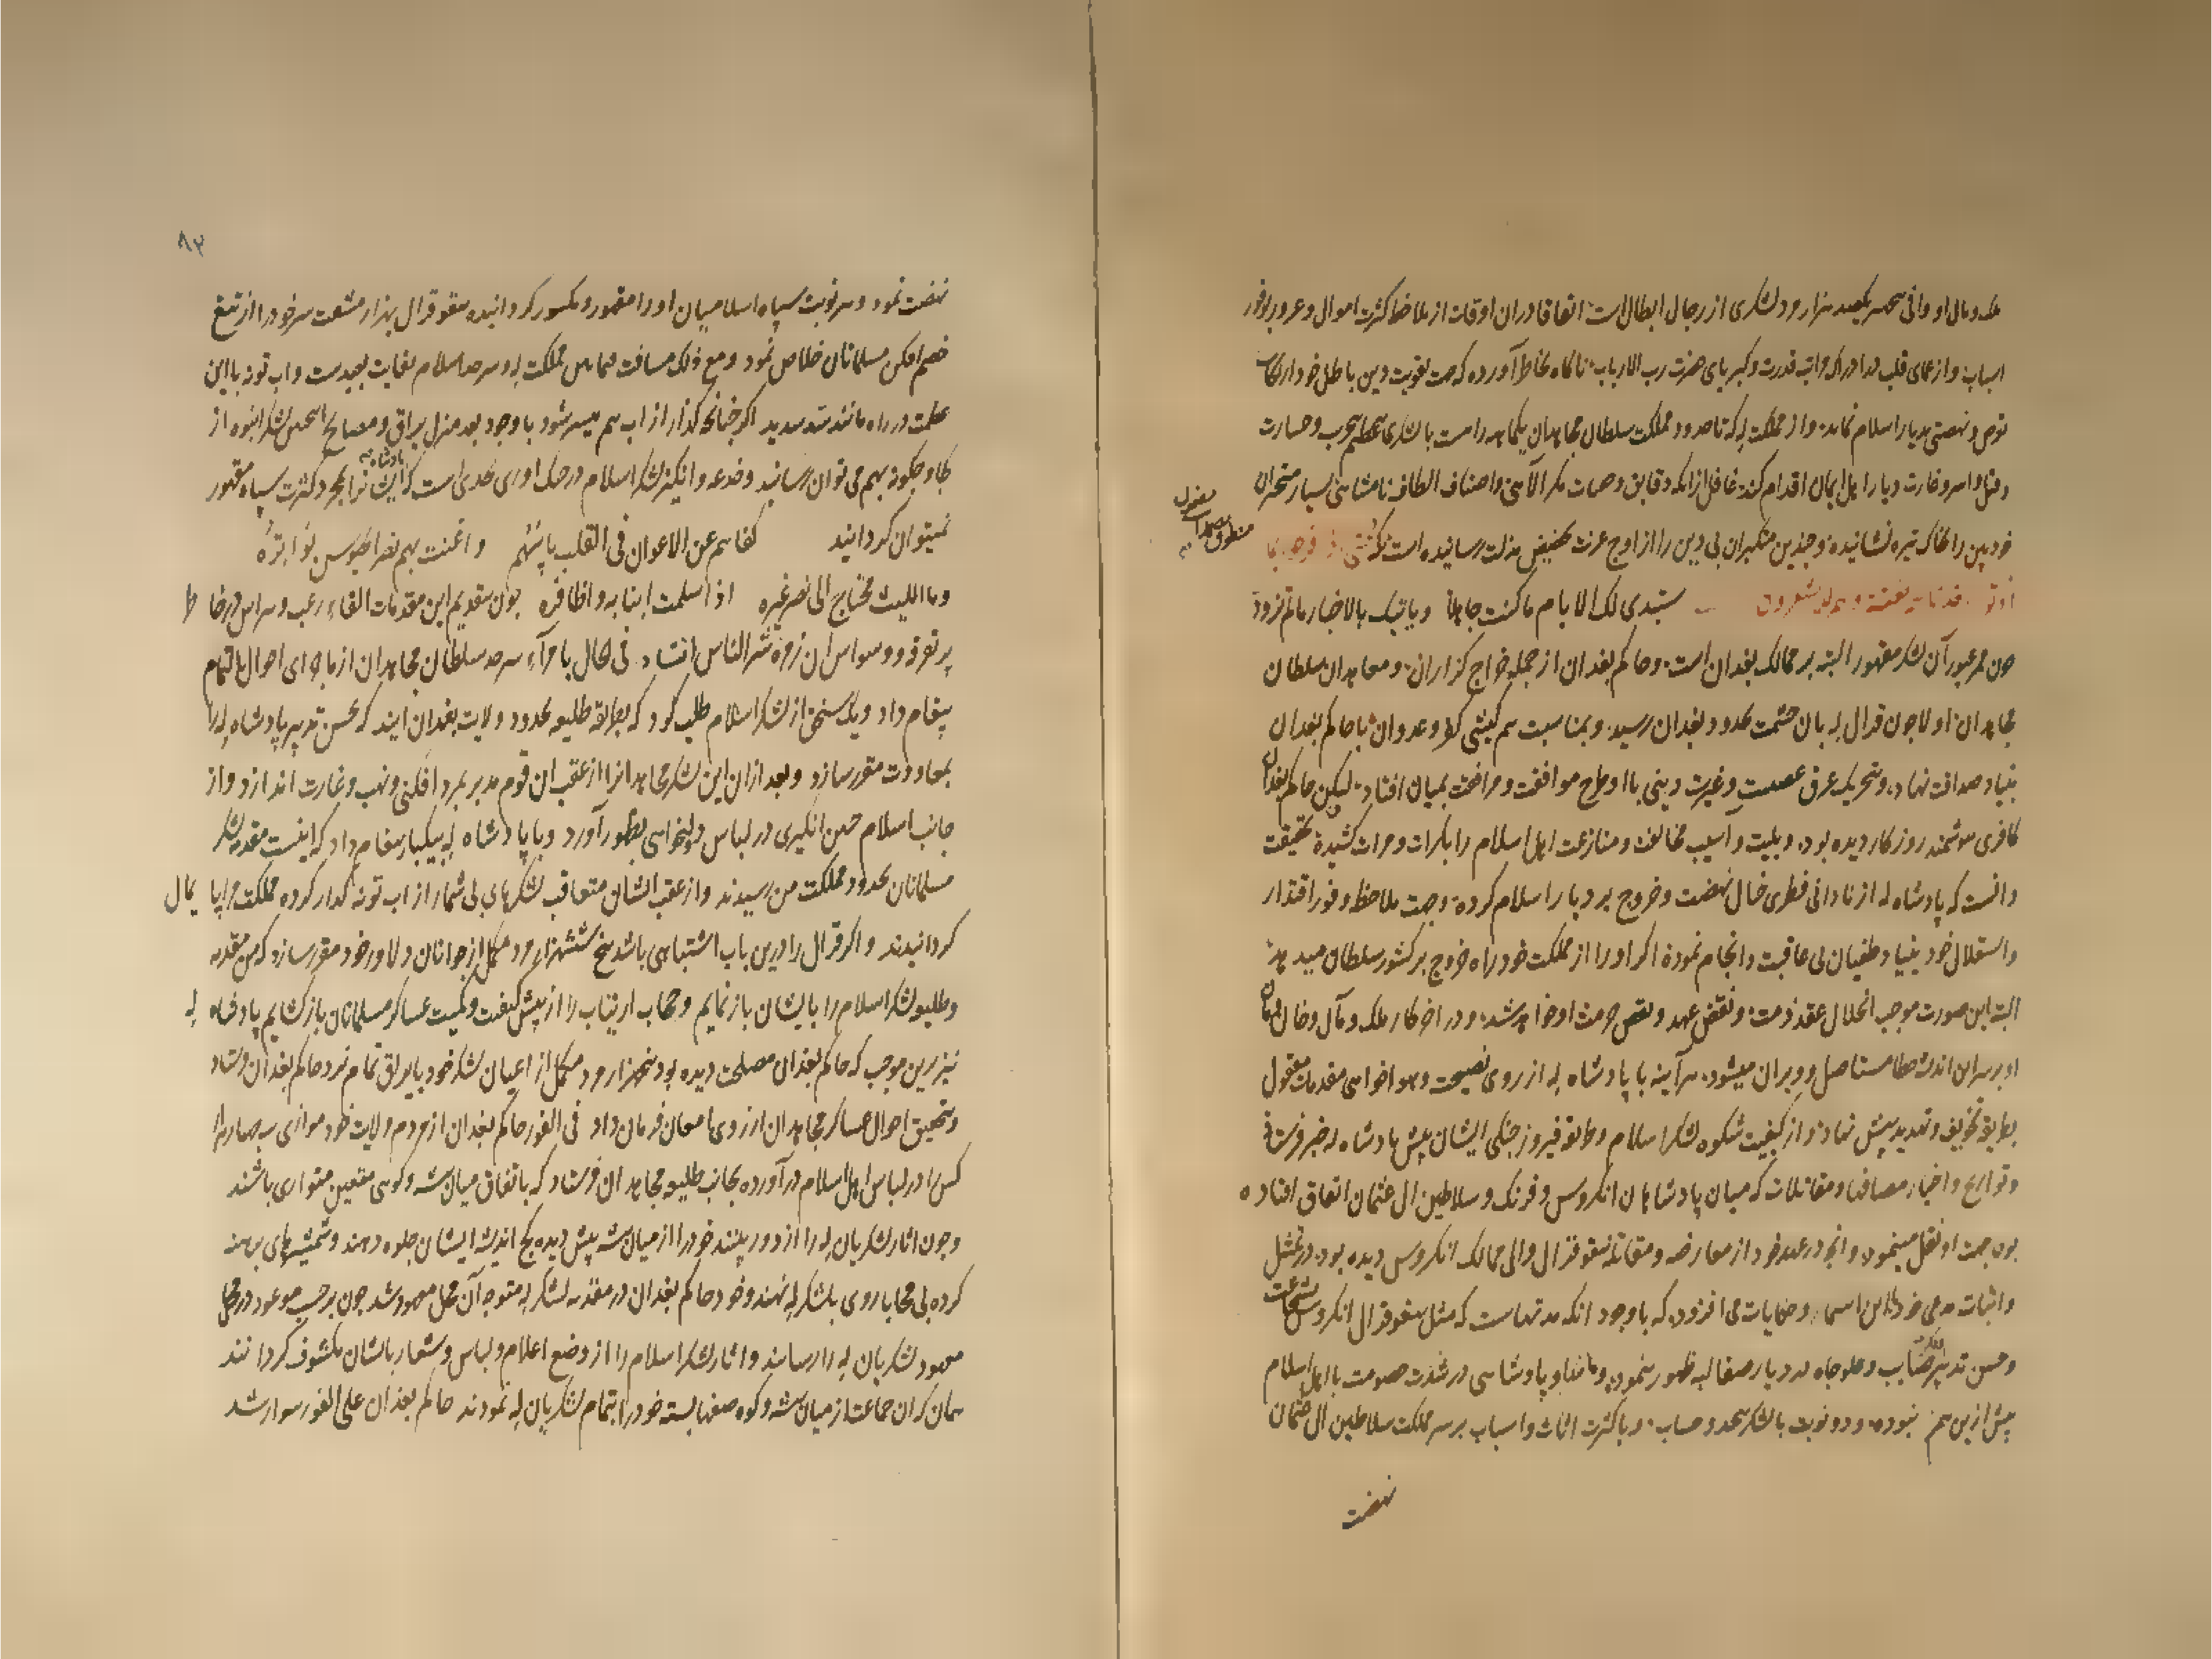 ملک و مال او وافی بتسخیر یکصد هزار مرد لشکری از رجال ابطال است اتفاقا دران اوقات از ملاحظهٔ کثرت اموال و غرور بوفور
اسباب و از عمای قلب در ادراک مراتب قدرت و کبریای حضرت رب الارباب ناگاه بخاطر آورده که جهت تقویت دین باطل خود
و نهضتی بدیار اسلام نماید و از مملکت له که تا حدود مملکت سلطان مجاهدان یکماهه راهست با لشکرهای عظیم بحرب و جسارت
و قتل و اسر و غارت دیار اهل ایمان اقدام کند غافل ازانکه دقایق و جهات مکر الٓهی و اصناف الطاف نامتناهی بسیار متجبران
خودبین را بخاک تیره نشانیده و چندین متکبران بی دین را از اوج عزت بحضیض مذلت رسانیده است که حتی اذا فرحوا بما
اوتوا اخذناهم بغتة و هم لا یشعرون ستبدی لک الایام ما کنت جاهلا و یاتیک بالاخبار ما لم تزود
چون ممر عبور آن لشکر مقهور البته بر ممالک بغدان است و حاکم بغدان از جمله خراج گزاران و معاهدان سلطان
مجاهدان اولا چون قرال له بان حشمت بحدود بغدان رسید و بمناسبت هم کیشی کفر و عدوان با حاکم بغدان
بنیاد صداقت نهاد و بتحریک عرق عصبیت و غیرت دینی با او طرح موافقت و مرافقت بمیان افتاد لیکن حاکم بغدان
کافری هوشمند روزکار دیده بود و بلیت و آسیب مخالفت و منازعت اهل اسلام را بکرات و مرات کشیده بحقیقت
دانست که پادشاه له از نادانی فطری خیال نهضت و خروج بر دیار اسلام کرده و جهت ملاحظه وفور اقتدار
و استقلال خود بنیاد طغیان بی عاقبت و انجام نموده اگر او را از مملکت خود راه خروج بر کشور سلطان میدهد
البته این صورت موجب انحلال عقد ذمت و نقض عهد و نقص حرمت او خواهد شد و در اخر کار ملک و مال و خان و مان
او بر سر این اندیشه خطا مستاصل و ویران میشود هرآینه با پادشاه له از روی نصیحت و هواخواهی مقدمات معقول
بطریق تخویف و تهدید پیش نهاد و از کیفیت شکوه لشکر اسلام و طریقه فیروز جنگی ایشان پیش پادشاه له خبر فرستاد
و تواریخ و اخبار مصافها و مقاتلات که میان پادشاهان انکروس و فرنک و سلاطین ال عثمان اتفاق افتاده
بود جهت او نقل مینمود و انچه در عهد خود از معارضه و مقاتله ینقو قرال والی ممالک انکروس دیده بود در تمثل
و اثبات مدعی خود این اسما و حکایات می افزود که باوجود انکه مدتهاست که مثل ینقو قرال انکروس بشجاعت
و حسن تدبیر صایب و علو جاه در دیار صقالبه ظهور ننمود و مانند او پادشاهی در شدت خصومت با اهل اسلام
پیش ازین هم نبوده و دو نوبت با لشکر بیحد و حساب و با کثرت اثاث و اسباب بر سر مملکت سلاطین ال عثمان
نهضت
۸۳
نهضت نمود و هر نوبت سپاه اسلامیان او را مقهور و مکسور کردانیده ینقو قرال بهزار مشقت سر خود را از تیغ
خصم افکن مسلمانان خلاص نمود و مع ذلک مسافت میان مملکت له و سرحد اسلام بغایت بعیدست و اب تونه با این
عظمت در راه مانند سد سدید اگر چنانچه کذار از اب هم میسر شود با وجود بعد منزل یراق و مصالح این لشکر انبوه از
کجا و چکونه بهم می توان رسانید و خدعه و انکیز لشکر اسلام در جنک اوری حدی است که ایشان را بمجرد کثرت سپاه مقهور
نمیتوان کردانید کفاهم عن الاعوان فی القلب باسهم و اغنت بهم نصرا
و ما اللیث محتاج الی نصر غیره اذا سلمت انیابه و اظافره چون بتقدیم این مقدمات القاء رعب و هراس در خاطر
پر تفرقه و وسواس ان زمره شر الناس افتاد فی الحال با امراء سرحد سلطان مجاهدان از ماجرای احوال بالتمام
پیغام داد و یک سنجق از لشکر اسلام طلب کرد که بطریقه طلیعه بحدود ولایت بغدان ایند که بحسن تدبیر پادشاه له را
بمعاودت مقرر سازد و بعد ازان این لشکر مجاهدانرا از عقب ان قوم مدبر بمرد افکنی و نهب و غارت اندازد و از
جانب اسلام حسن انکیزی در لباس دولتخواهی بظهور آورد و با پادشاه له بیکبار پیغام داد که اینست مقدمه لشکر
مسلمانان بحدود مملکت من رسیدند و از عقب ایشان متعاقب لشکرهای بی شمار از اب تونه کذار کرده مملکت مرا پایمال
کردانیدند و اگر قرال را درین باب اشتباهی باشد پنج ششهزار مرد مکمل از جوانان دلاور خود مقرر سازد که من مقدمه
و طلیعه لشکر اسلام را بایشان باز نمایم و حجاب ارتیاب را از پیش کیفیت و کمیت عساکر مسلمانان باز کشایم پادشاه له
نیز برین موجب که حاکم بغدان مصلحت دیده بود پنجهزار مرد مکمل از اعیان لشکر خود با یراق تمام نزد حاکم بغدان فرستاد
و بتحقیق احوال عساکر مجاهدان از روی امعان فرمان داد فی الفور حاکم بغدان از مردم ولایت خود موازی سه چهار هزار
کس را در لباس اهل اسلام درآورده بجانب طلیعه مجاهدان فرستاد که باتفاق میان بیشه و کوهی متعین متواری باشند
و چون اثار لشکریان له را از دور بینند خود را از میان بیشه پیش دیده کج اندیشه ایشان جلوه دهند و شمشیرهای برهنه
کرده بی محابا روی بلشکر له نهند و خود حاکم بغدان در مقدمه لشکر له متوجه آن محل معهود شد چون بر حسب موعود در محل
معهود لشکریان له را رسانید و اثار لشکر اسلام را از وضع اعلام و لباس و شعار بایشان مکشوف کردانند
همان که ان جماعت از میان بیشه و کوه صفها بسته خود را بتمام لشکریان له نمودند حاکم بغدان علی الفور سوار شد